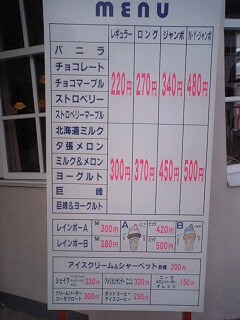 MENU
レギュラー ロング ジャンボ N・Y・ジャンボ
バニラ
チョコレート
チョコマーブル 220円 270円 340円 480円
ストロベリー
ストロベリーマーブル
北海道ミルク
夕張メロン
ミルク&メロン 300円 370円 450円 500円
ヨーグルト
巨峰
巨峰&ヨーグルト
レインボーA M 300円 A 420円 B
レインボーB M 380円 500円
アイスクリーム&シャーベット 各種 200円
シェイク 320円 320円 コーラ メロンソーダー オレンジ 150円
クリームソーダー コーラフロート 300円 ホットコーヒー アイスコーヒー 250円